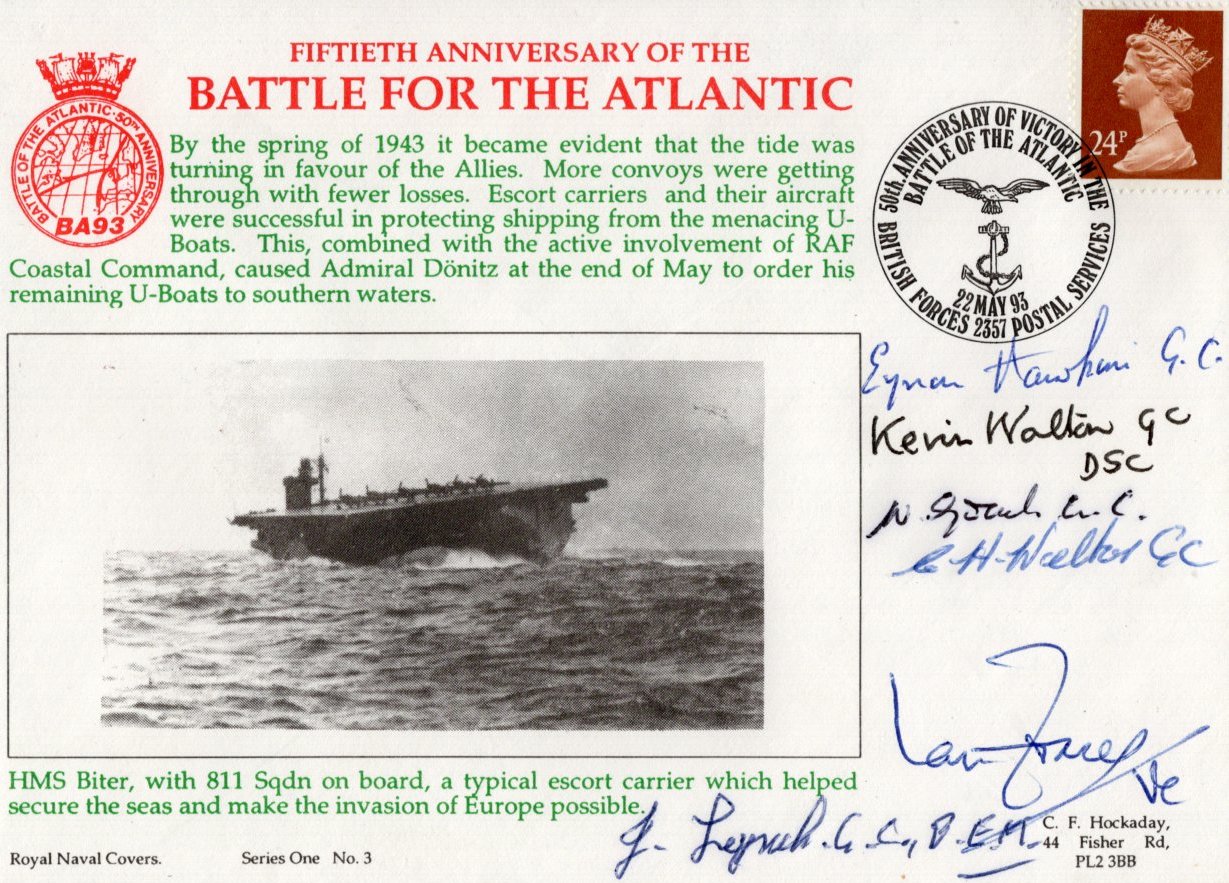 FIFTIETH ANNIVERSARY OF THE
BATTLE FOR THE ATLANTIC
BATTLE OF THE ATLANTIC·50TH ANNIVERSARY
BA93
By the spring of 1943 it became evident that the tide was
turning in favour of the Allies. More convoys were getting
through with fewer losses. Escort carriers and their aircraft
were successful in protecting shipping from the menacing U-
Boats. This, combined with the active involvement of RAF
Coastal Command, caused Admiral Dönitz at the end of May to order his
remaining U-Boats to southern waters.
24P
50th ANNIVERSARY OF VICTORY IN THE
BATTLE OF THE ATLANTIC
22 MAY 93
BRITISH FORCES 2357 POSTAL SERVICES
Eynon Hawkins G.C.
Kevin Walton GC
DSC
G.C.
C.H. Walker GC
HMS Biter, with 811 Sqdn on board, a typical escort carrier which helped
secure the seas and make the invasion of Europe possible.
Ian Fraser VC
J. Lynch. G.C., B.E.M.
C. F. Hockaday,
44 Fisher Rd,
PL2 3BB
Royal Naval Covers. Series One No. 3